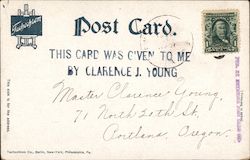 Tuchochrom
Post Card.
THIS CARD WAS GIVEN TO ME
BY CLARENCE J. YOUNG
This side is for the address.
Master Clarence Young,
71 North 20th St,
Portland,
Oregon.
Tuchochrom Co., Berlin, New-York, Philadelphia, Pa.